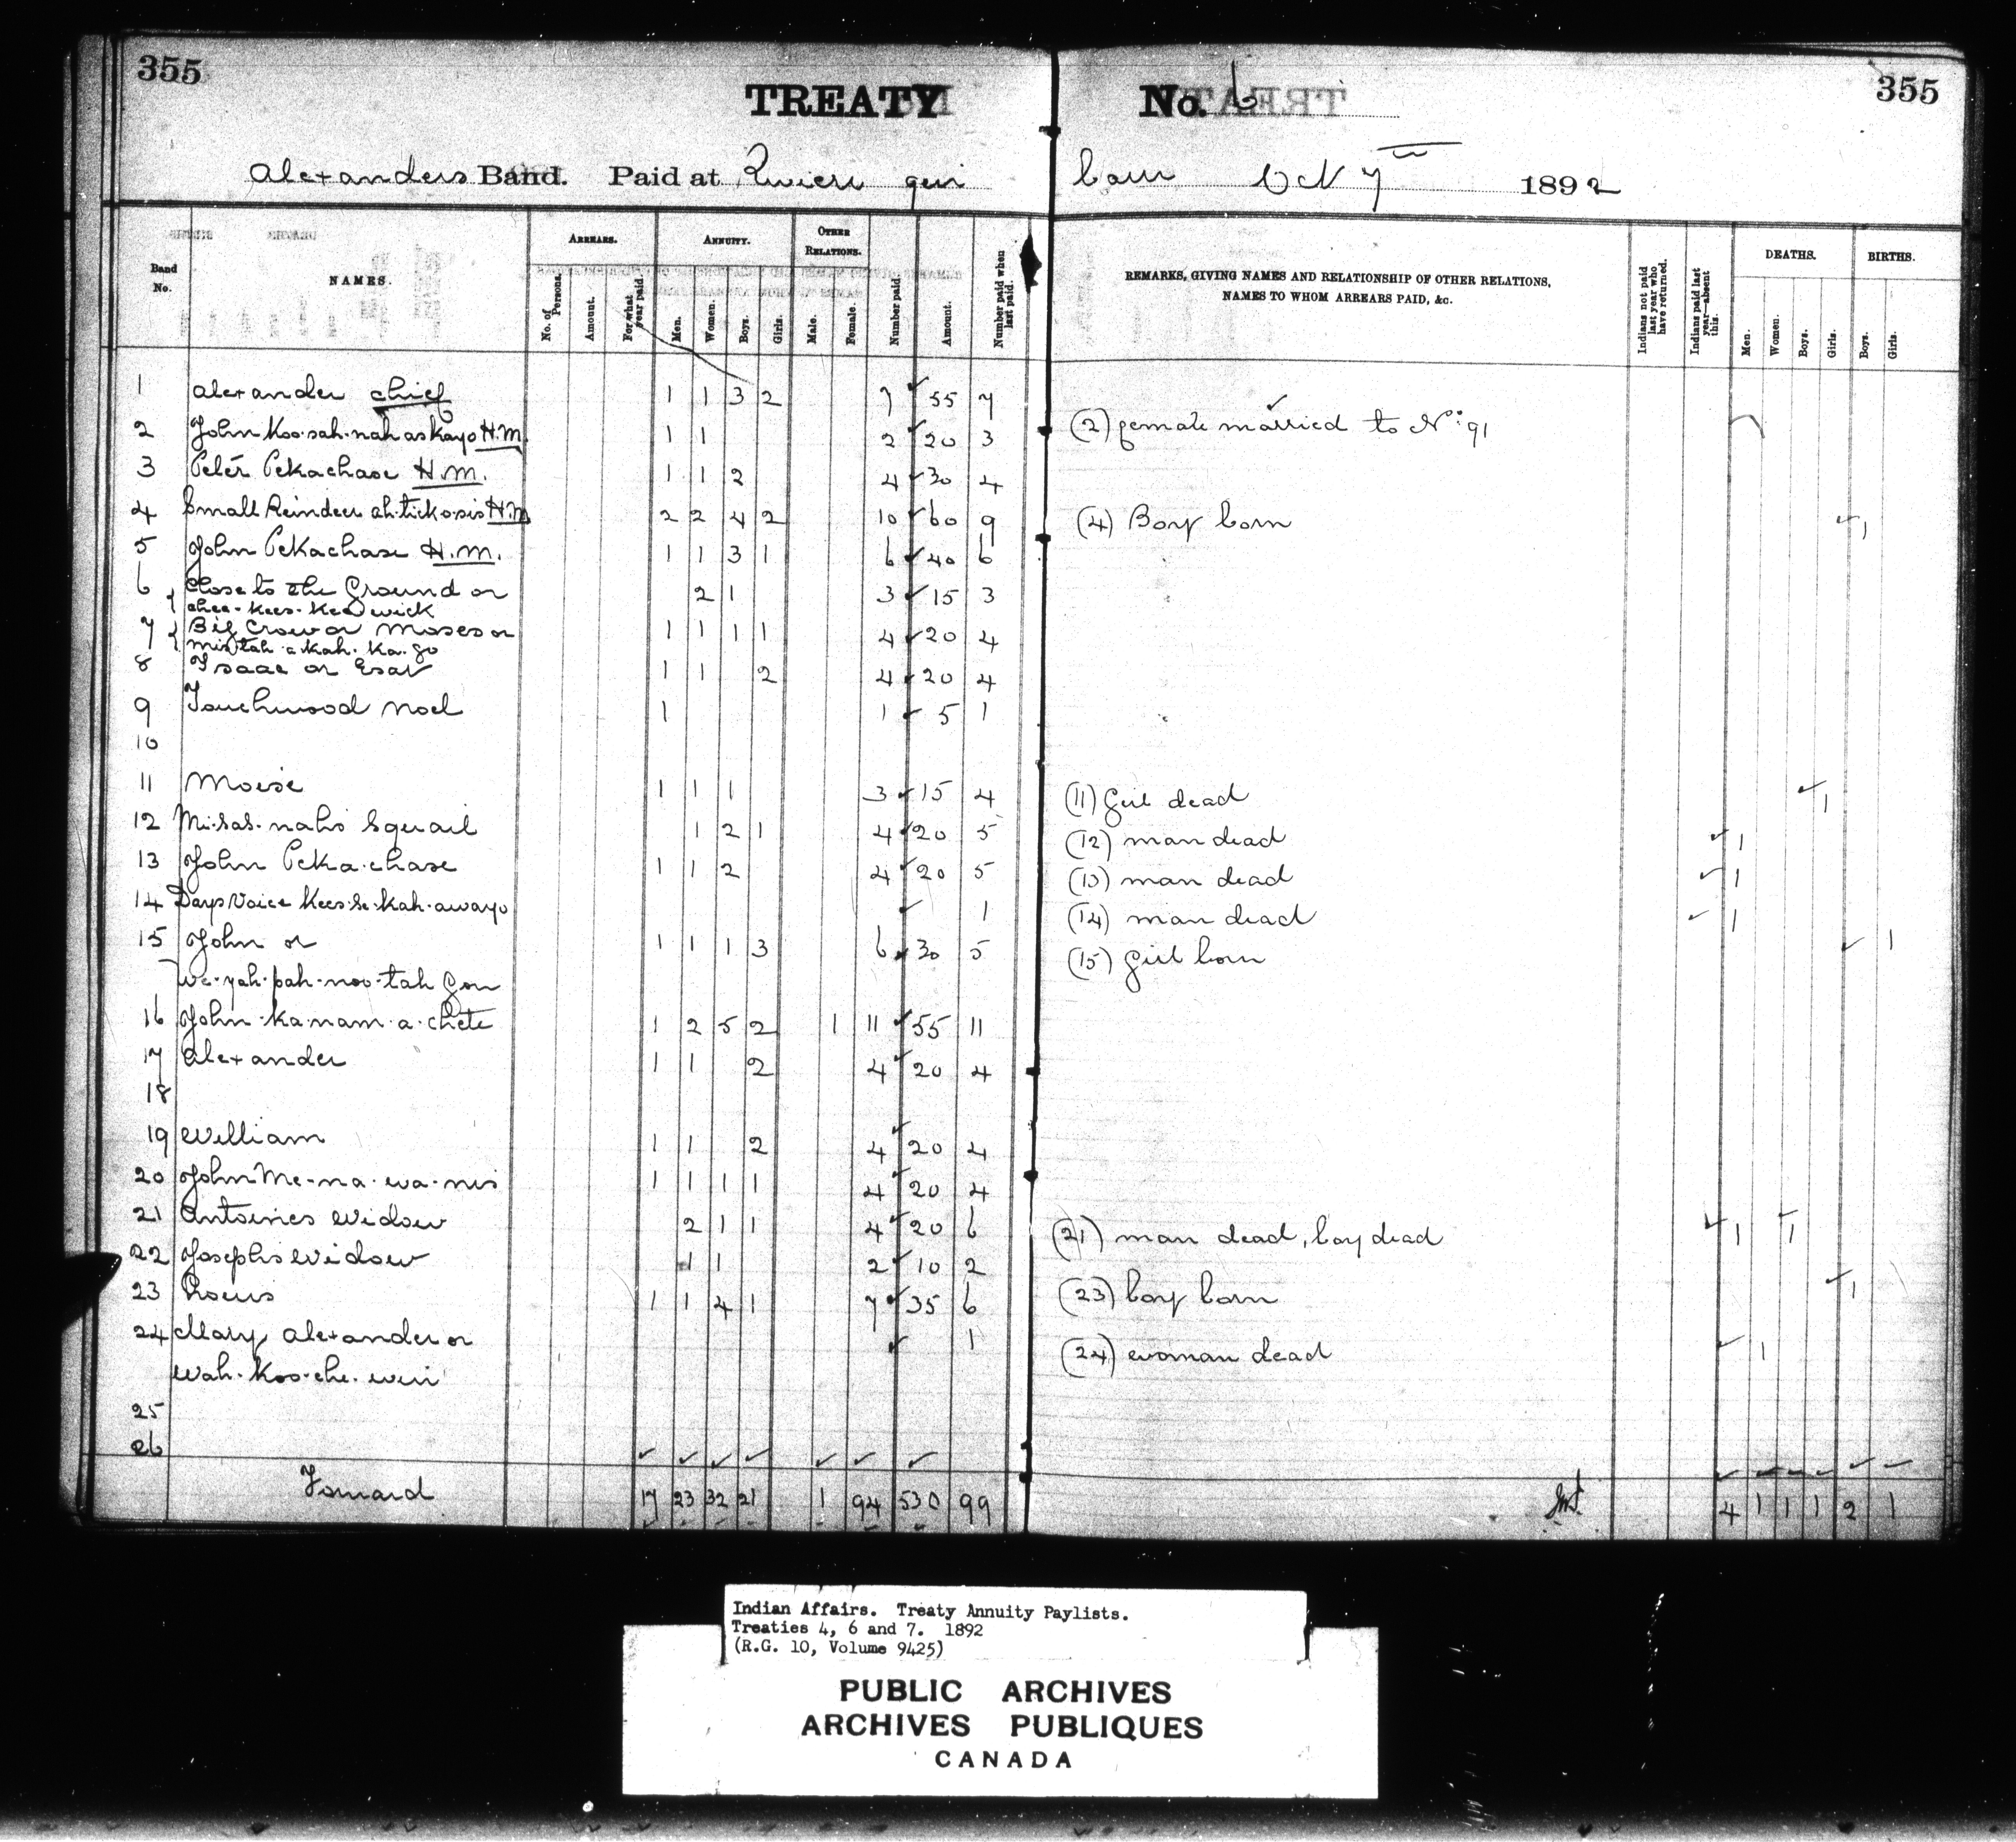 355 355
TREATY No. 6
Alexanders Band. Paid at Riviere qui Barr Oct 7th 1892
Band No.
NAMES.
ARREARS.
No. of Persons.
Amount.
For what year paid.
ANNUITY.
Men.
Women.
Boys.
Girls.
OTHER RELATIONS.
Male.
Female.
Number paid.
Amount.
Number paid when last paid.
REMARKS, GIVING NAMES AND RELATIONSHIP OF OTHER RELATIONS,
NAMES TO WHOM ARREARS PAID, &c.
Indians not paid last year who have returned.
Indians paid last year—absent this.
DEATHS.
Men.
Women.
Boys.
Girls.
BIRTHS.
Boys.
Girls.
1 Alexander Chief 1 1 3 2 7 55 7
2 John Koo-sah-nah askayo H.M. 1 1 2 20 3 (2) female married to No. 91
3 Peter Pekachase H.M. 1 1 2 4 30 4
4 Small Reindeer ah-tick-o-sis H.M. 2 2 4 2 10 60 9 (4) Boy born 1
5 John Pekachase H.M. 1 1 3 1 6 40 6
6 Close to the Ground or 2 1 3 15 3
chee-kees-kee wick
7 Big Crow or Moses or 1 1 1 1 4 20 4
mis-tah-a kah-ka-go
8 Isaac or Esau 1 1 2 4 20 4
9 Touchwood Noel 1 1 5 1
10
11 Moise 1 1 1 3 15 4 (11) Girl dead 1
12 Mi-sas-nah's Squail 1 2 1 4 20 5 (12) man dead 1
13 John Peka-chase 1 1 2 4 20 5 (13) man dead 1
14 Days Voice Kees-se-kah-awayo 1 (14) man dead 1
15 John or 1 1 1 3 6 30 5 (15) Girl born 1
We-yah-pah-noo-tah Gon
16 John-ka-nam-a-chete 1 2 5 2 1 11 55 11
17 Alexander 1 1 2 4 20 4
18
19 William 1 1 2 4 20 4
20 John Me-na-wa-nis 1 1 1 1 4 20 4
21 Antoines Widow 2 1 1 4 20 6 (21) man dead, boy dead 1 1
22 Josephs Widow 1 1 2 10 2
23 1 1 4 1 7 35 6 (23) boy born 1
24 Mary Alexander or 1 (24) woman dead 1
Wah-koo-che-win
25
26
Forward 17 23 32 21 1 94 530 99 4 1 1 1 2 1
Indian Affairs. Treaty Annuity Paylists.
Treaties 4, 6 and 7. 1892
(R.G. 10, Volume 9425)
PUBLIC ARCHIVES
ARCHIVES PUBLIQUES
CANADA